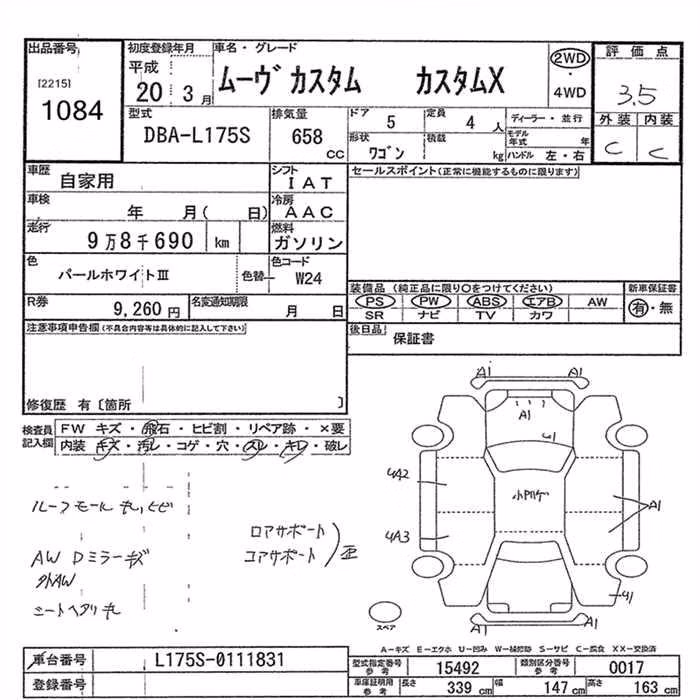 出品番号
[2215]
1084
初度登録年月
平成
20 3 月
車名・グレード
ムーヴ カスタム カスタムX
2WD
・
4WD
評価点
3.5
外装 内装
C C
型式
DBA-L175S
排気量
658
CC
ドア
5
定員
4 人
形状
ワゴン
積載
kg
ディーラー・並行
モデル年式 年
ハンドル 左・右
車歴
自家用
シフト
IAT
車検
年 月( 日)
冷房
AAC
走行
9万8千690 km
燃料
ガソリン
色
パールホワイトⅢ
色替
色コード
W24
R券
9,260 円
名変通知期限
月 日
セールスポイント(正常に機能するものに限ります)
装備品 (純正品に限り○をつけてください)
PS PW ABS エアB AW
SR ナビ TV カワ
新車保証書
有・無
後日品
保証書
注意事項申告欄(不具合内容等は具体的に記入して下さい)
修復歴 有〔箇所 〕
検査員記入欄
FW キズ・飛石・ヒビ割・リペア跡・×要
内装 キズ・汚レ・コゲ・穴・スレ・キレ・破レ
ルーフモール キレ,ヒビ
AW Dミラーキズ
外AW
シートヘタリ キレ
ロアサポート
コアサポート
A1 A1
A1
U1
UA2
UA3
A1
U1
A1 A1
スペア
A-キズ E-エクボ U-凹み W-補修跡 S-サビ C-腐食 XX-交換済
車台番号
L175S-0111831
登録番号
型式指定番号 参考
15492
類別区分番号 参考
0017
車庫証明用 参考
長さ 339 cm
幅 147 cm
高さ 163 cm